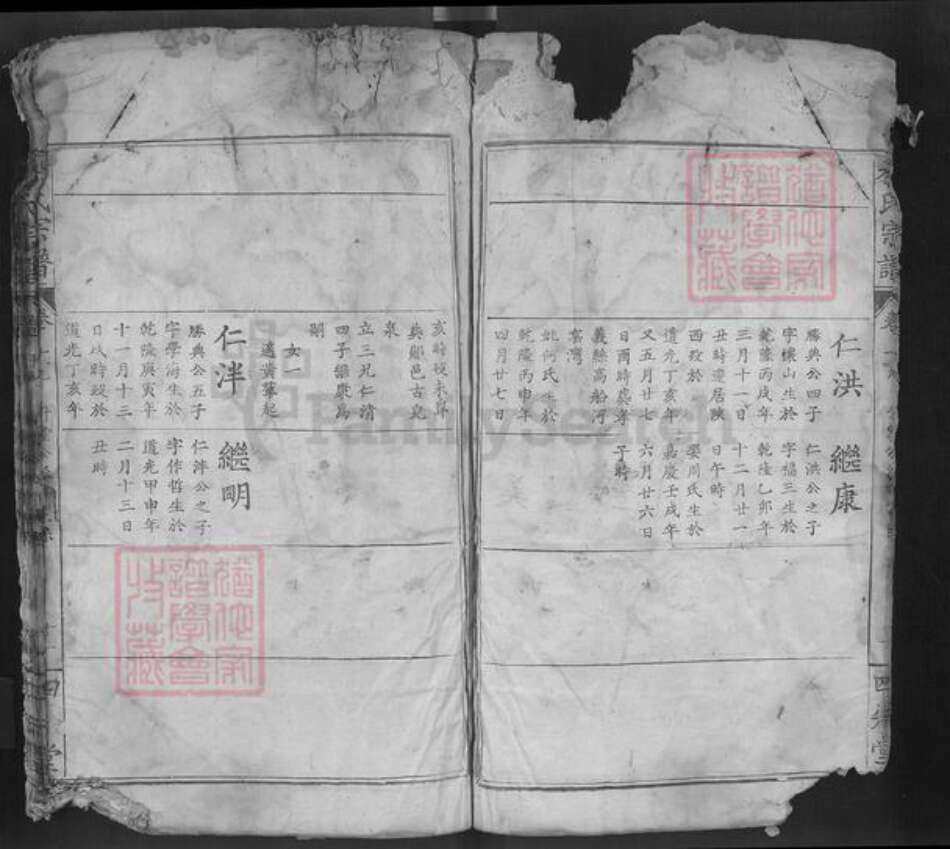 仁洪
勝典公四子
字懷山生於
乾隆丙戌年
三月十一日
丑時遷居陝
西歿於
道光丁亥年
又五月廿七
日酉時葬孝
義縣高船河
窑灣
妣何氏生於
乾隆丙申年
四月廿七日
亥時歿未葬
英鄖邑古
泉
立三兄仁清
四子繼康為
嗣
女一
適黃肇起
繼康
仁洪公之子
字福三生於
乾隆乙卯年
十二月廿一
日午時
娶周氏生於
嘉慶壬戌年
六月廿六日
子時
仁泮
勝典公五子
字學海生於
乾隆庚寅年
十一月十三
日戌時歿於
道光丁亥年
繼明
仁泮公之子
字作哲生於
道光甲申年
二月十三日
丑時
氏宗譜
FamilySearch